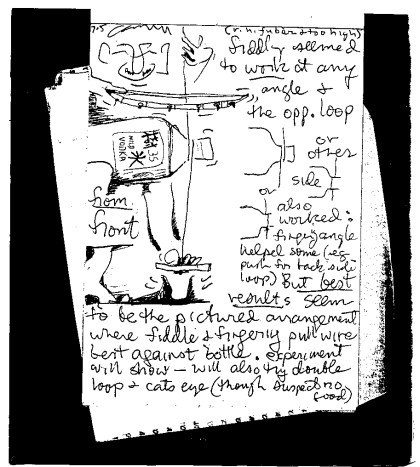 (r.h. fubar & too high)
fiddley seemed
to work at any
angle &
the opp. loop
or
other
side
or
also
worked:
finger/angle
helped some (eg.
push for back side
loop) But best
results seem
米
35
MILD
VODKA
from
front
to be the pictured arrangement
where fiddle & fingerly pull wire
best against bottle. experiment
will show — will also try double
loop & cats eye (though suspect no
good)